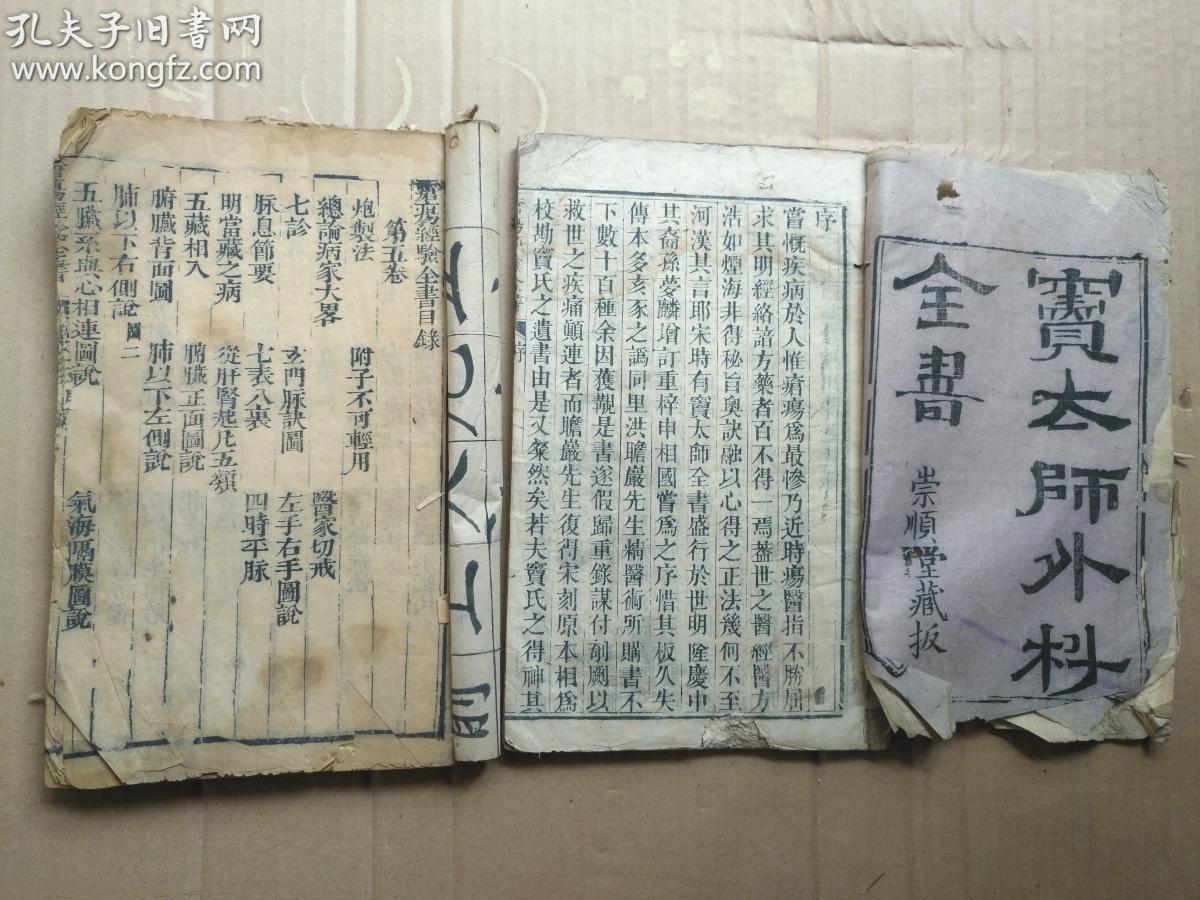 孔夫子旧书网
www.kongfz.com
竇太師外科
全書
崇順堂藏板
序
嘗慨疾病於人惟瘡瘍爲最慘乃近時瘍醫指不勝屈
求其明經絡諳方藥者百不得一焉蓋世之醫經醫方
浩如煙海非得秘旨奥訣融以心得之正法幾何不至
河漢其言耶宋時有竇太師全書盛行於世明隆慶中
其裔孫夢麟增訂重梓申相國嘗爲之序惜其板久失
傳本多亥豕之譌同里洪瞻巖先生精醫術所購書不
下數十百種余因獲覩是書遂假歸重錄謀付剞劂以
救世之疾痛顛連者而瞻巖先生復得宋刻原本相爲
校勘竇氏之遺書由是又粲然矣若夫竇氏之得神其
瘡瘍經驗全書目錄
第五卷
炮製法 附子不可輕用 醫家切戒
總論病家大畧
七診 玄門脉訣圖 左手右手圖說
脉息節要 七表八裏 四時平脉
明當藏之病 從肝腎起凡五類
五藏相入 腑臟正面圖說
腑臟背面圖 肺以下左側說
肺以下右側說 圖二
五臟系與心相連圖說 氣海隔膜圖說